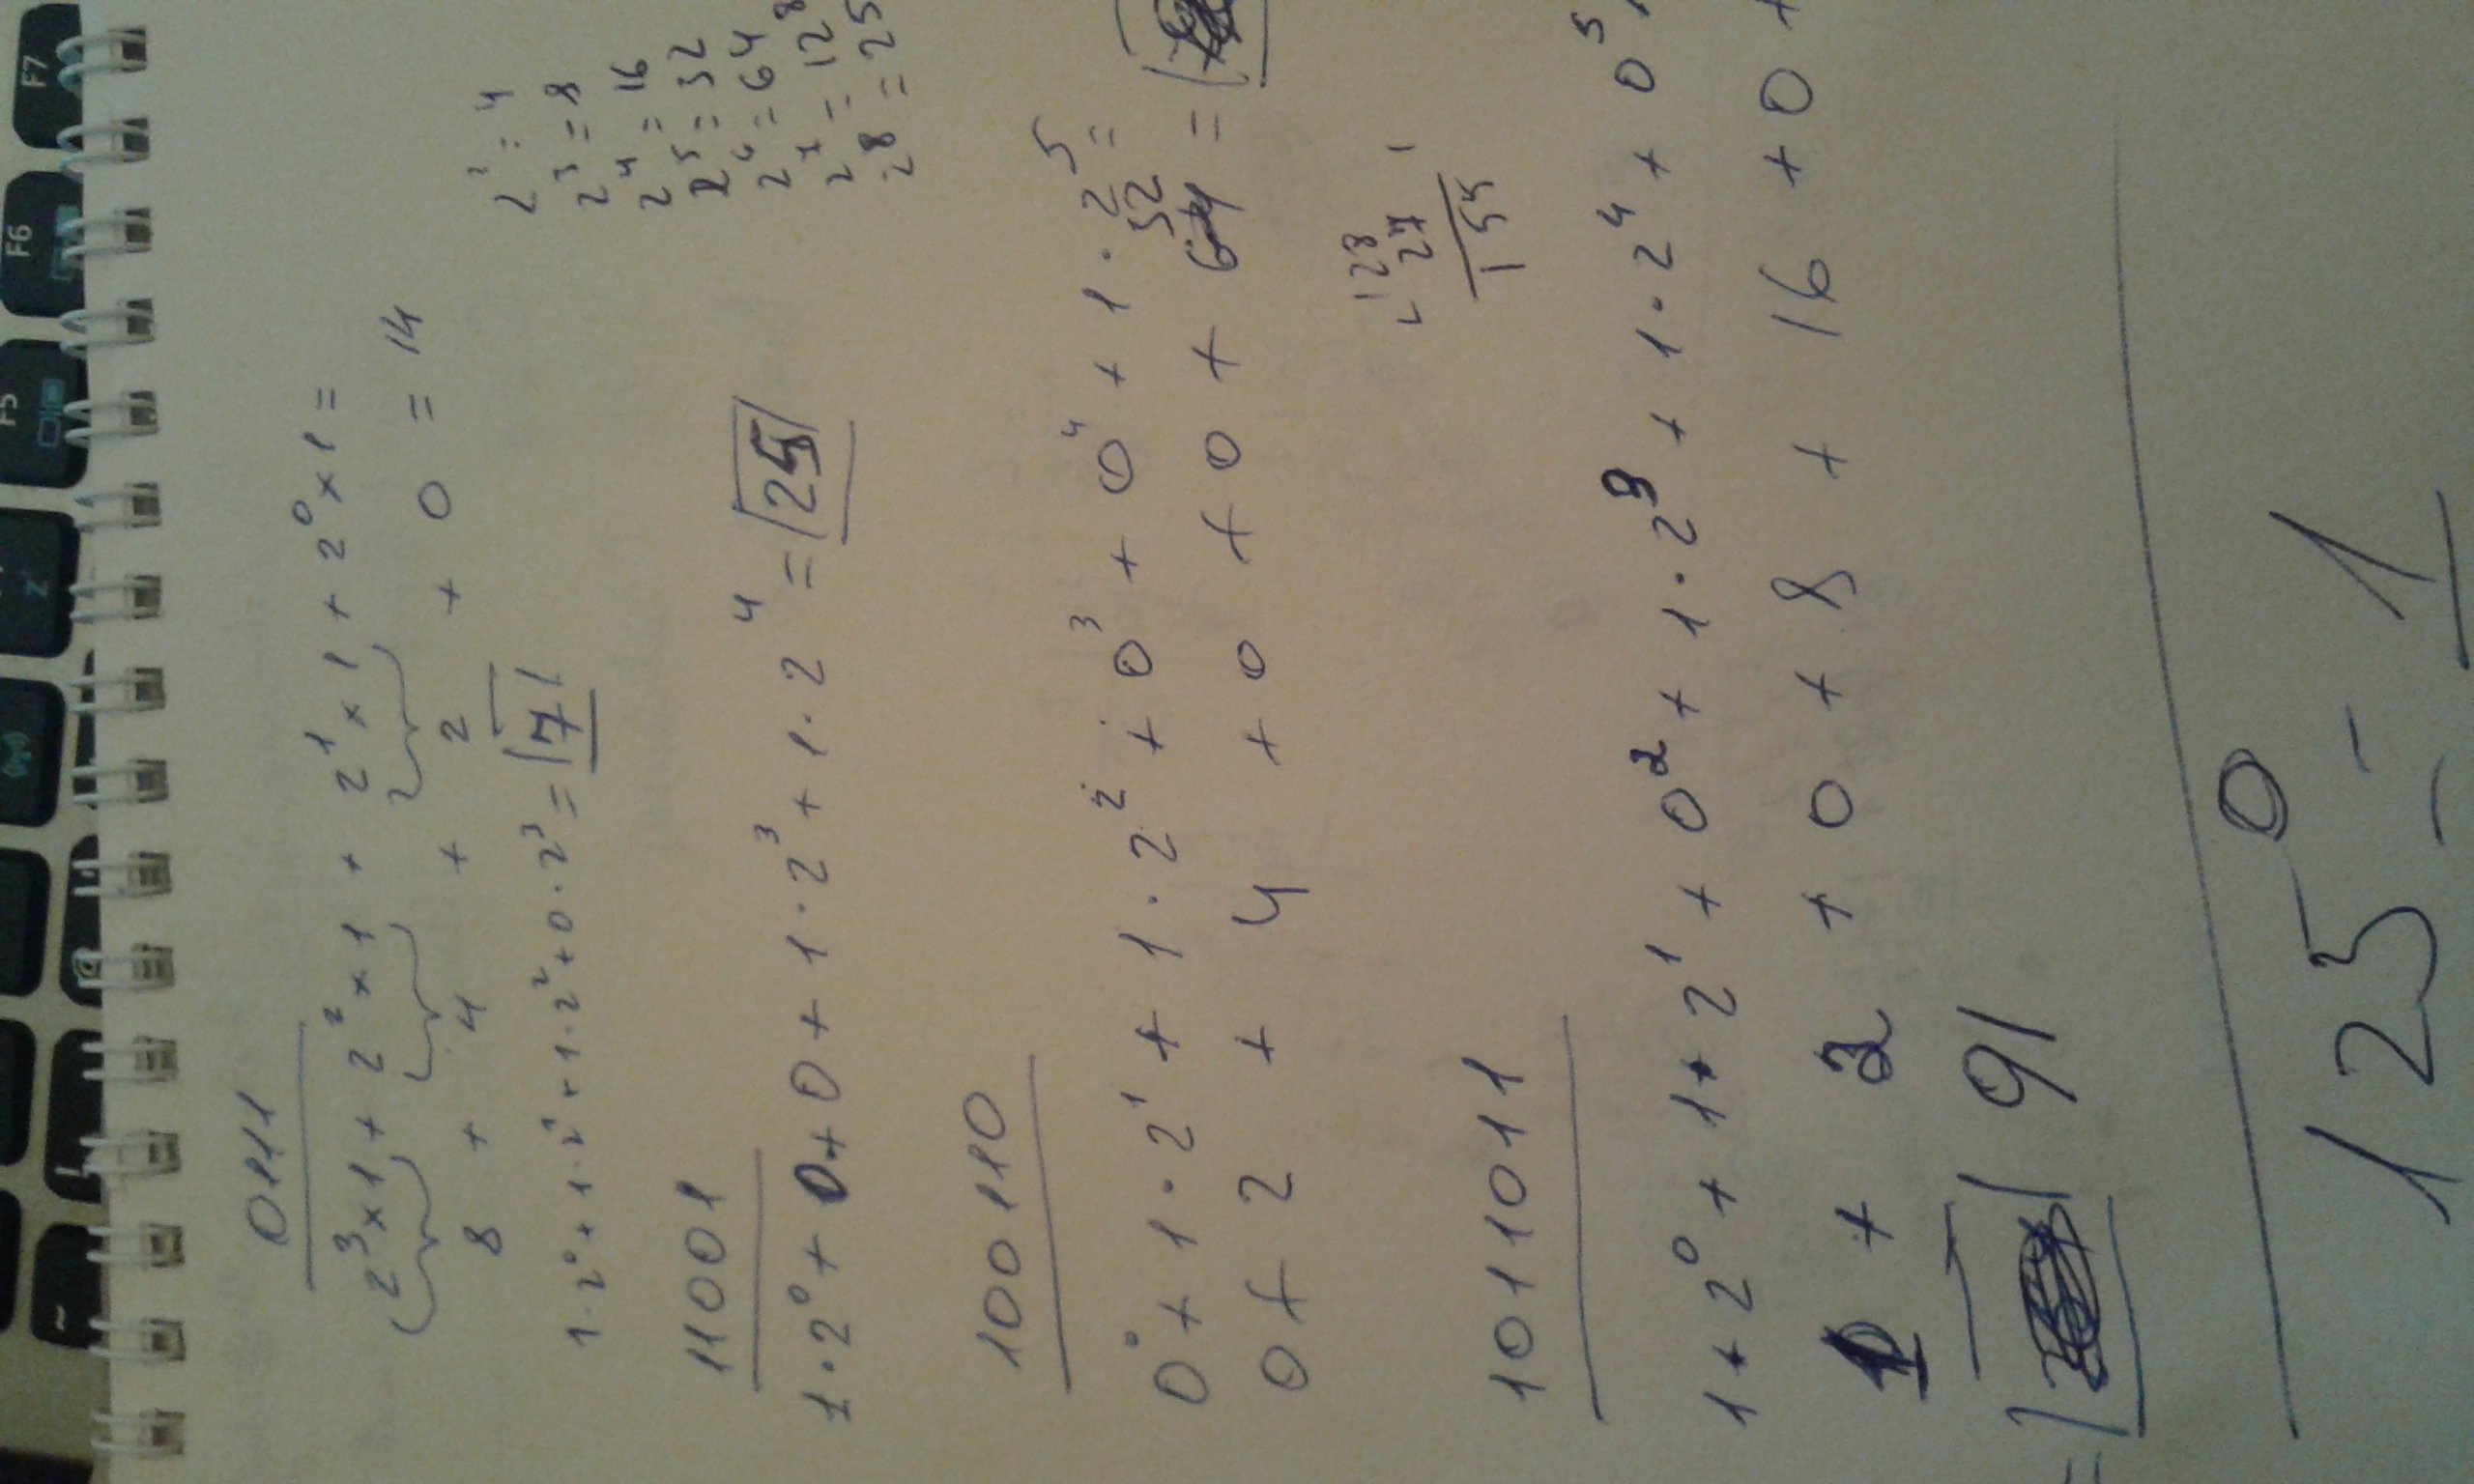 F5 F6 F7
~ ! @
0111
2³×1 + 2²×1 + 2¹×1 + 2⁰×1 =
8 + 4 + 2 + 0 = 14
1·2⁰ + 1·2¹ + 1·2² + 0·2³ = 7
2² = 4
2³ = 8
2⁴ = 16
2⁵ = 32
2⁶ = 64
2⁷ = 128
2⁸ = 25
11001
1·2⁰ + 0 + 0 + 1·2³ + 1·2⁴ = 25
100110
0⁰ + 1·2¹ + 1·2² + 0³ + 0⁴ + 1·2⁵ =
32
0 + 2 + 4 + 0 + 0 + 64 =
128
27
155
1011011
1·2⁰ + 1·2¹ + 0² + 1·2³ + 1·2⁴ + 0⁵
1 + 2 + 0 + 8 + 16 + 0 +
= 91
125⁰ = 1